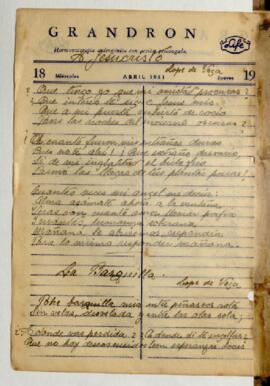 GRANDRON
Life
A Jesucristo
18 Miércoles ABRIL 1951 Jueves 19
Lope de Vega
¿Que tengo yo que mi amistad procuras?
¿Que interés te sigue Jesus mio
Que a mi puerta cubierto de rocío
Pasas las noches del invierno oscuras?
¡O cuanto fueron mis entrañas duras
Pues no te abrí! ¡Que extraño desvarío
Si de mi ingratitud el hielo frio
las llagas de tus plantas puras!
Cuantas veces mi angel me decia:
Alma asomate ahora a la ventana
Veras con cuanto amor llamar porfia
Y cuantas, hermosura soberana,
Mañana le abriremos respondia
Para lo mismo responder mañana.
La Barquilla
Lope de Vega
Pobre barquilla mia entre peñascos rota
Sin velas, desvelada y entre las olas sola;
¿A donde vas perdida? ¿A donde di te engolfas?
Que no hay deseos cuerdos con esperanzas locas